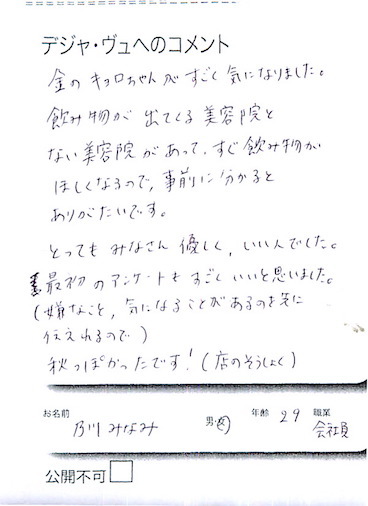 デジャ・ヴュへのコメント
金のキョロちゃんがすごく気になりました。
飲み物が出てくる美容院と
ない美容院があって、すぐ飲み物が
ほしくなるので、事前に分かると
ありがたいです。
とってもみなさん優しく、いい人でした。
最初のアンケートもすごしいいと思いました。
(嫌なこと、気になることがあるのを先に
伝えれるので)
秋っぽかったです!(店のそうしょく)
お名前 乃川 みなみ 男・女 年齢 29 職業 会社員
公開不可